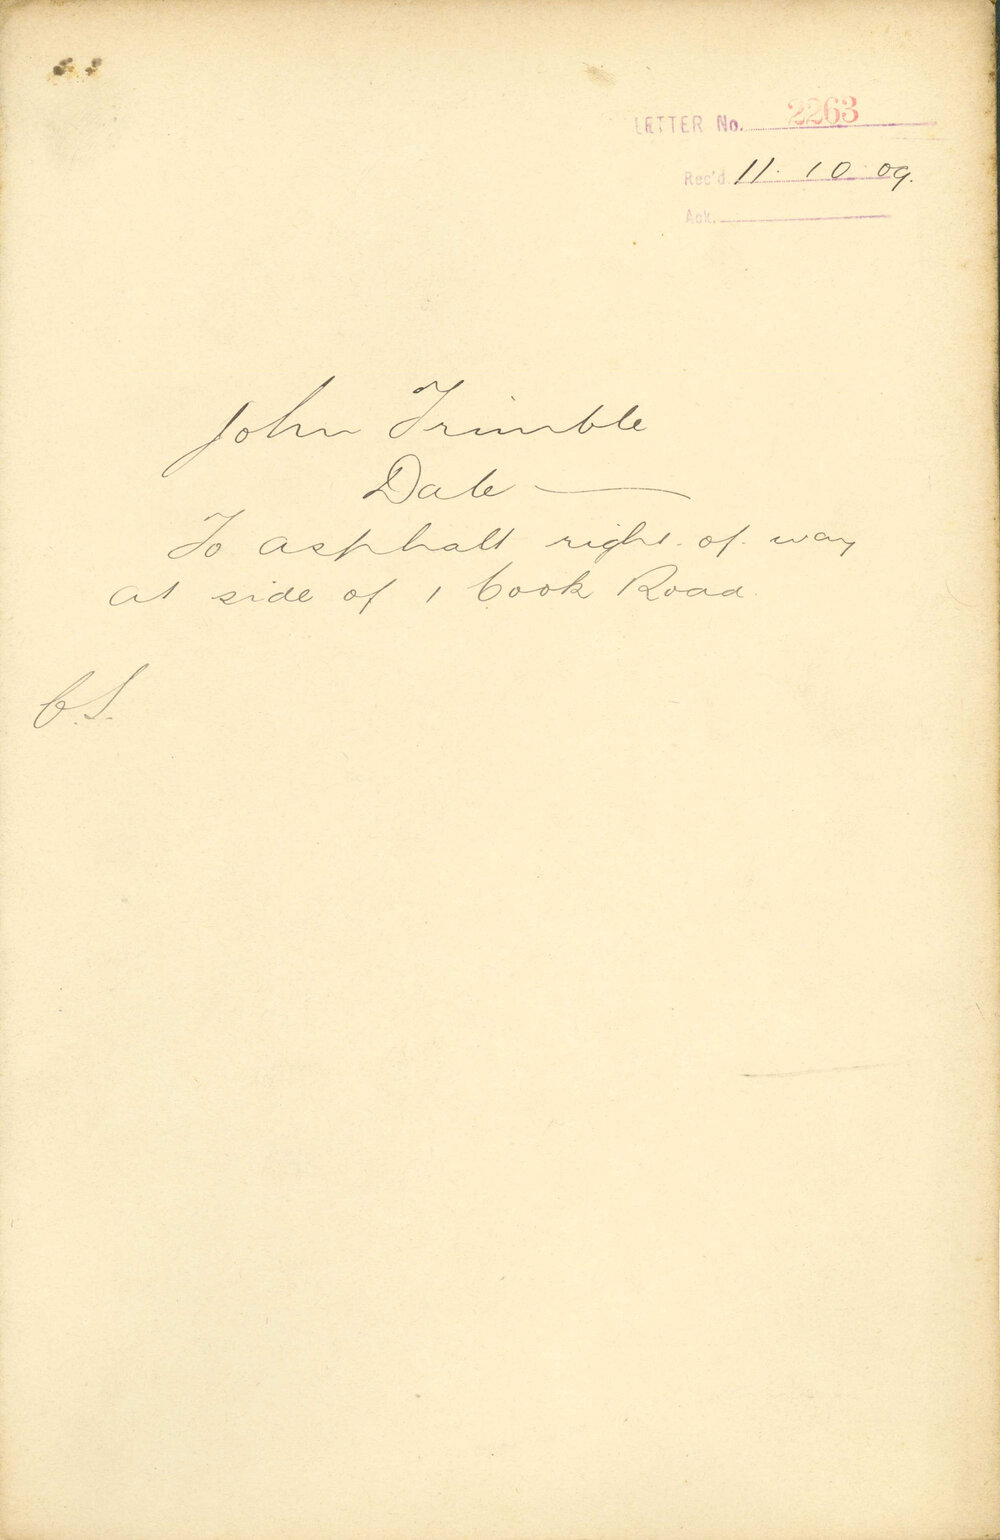 LETTER No. 2263
Rec'd. 11. 10 09.
Ack.
John Trimble
Date —
To asphalt right. of. way
at side of 1 Cook Road.
C.S.